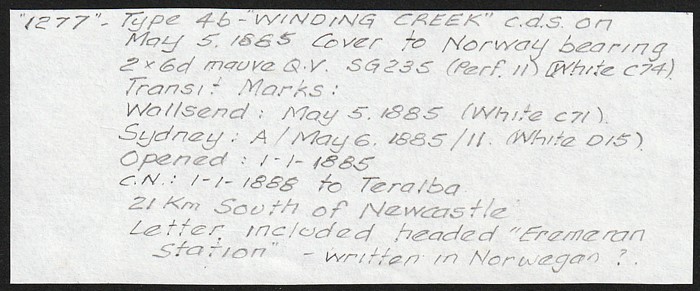 "1277" - Type 4b - "WINDING CREEK" c.d.s. on
May 5. 1885 Cover to Norway bearing
2 x 6d mauve Q.V. SG235 (Perf. 11) (White C74)
Transit Marks:
Wallsend: May 5. 1885 (White C71).
Sydney: A/May 6. 1885/11. (White D15)
Opened: 1-1-1885
C.N.: 1-1-1888 to Teralba
21 Km South of Newcastle
Letter included headed "Eremeran
Station" - written in Norwegan?.